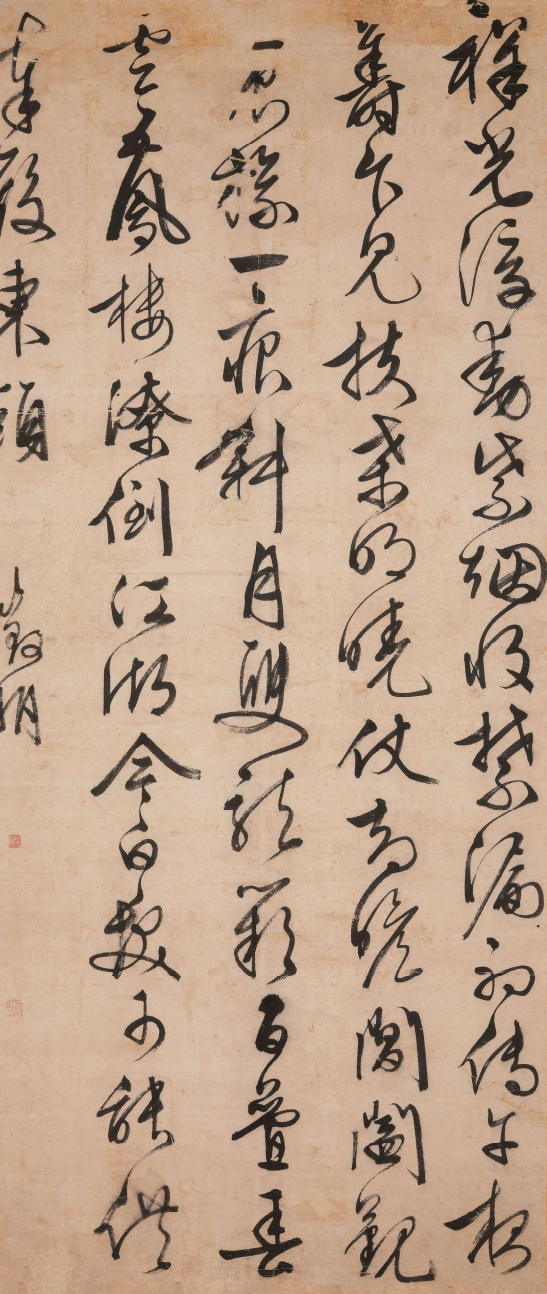 祥光浮動紫烟收禁漏初傳午板
籌乍見扶桑明曉仗高瞻閶闔覲
冕旒一痕斜月雙龍闕百疊春
雲五鳳樓潦倒江湖今白髮可能供
奉殿東頭 徵明